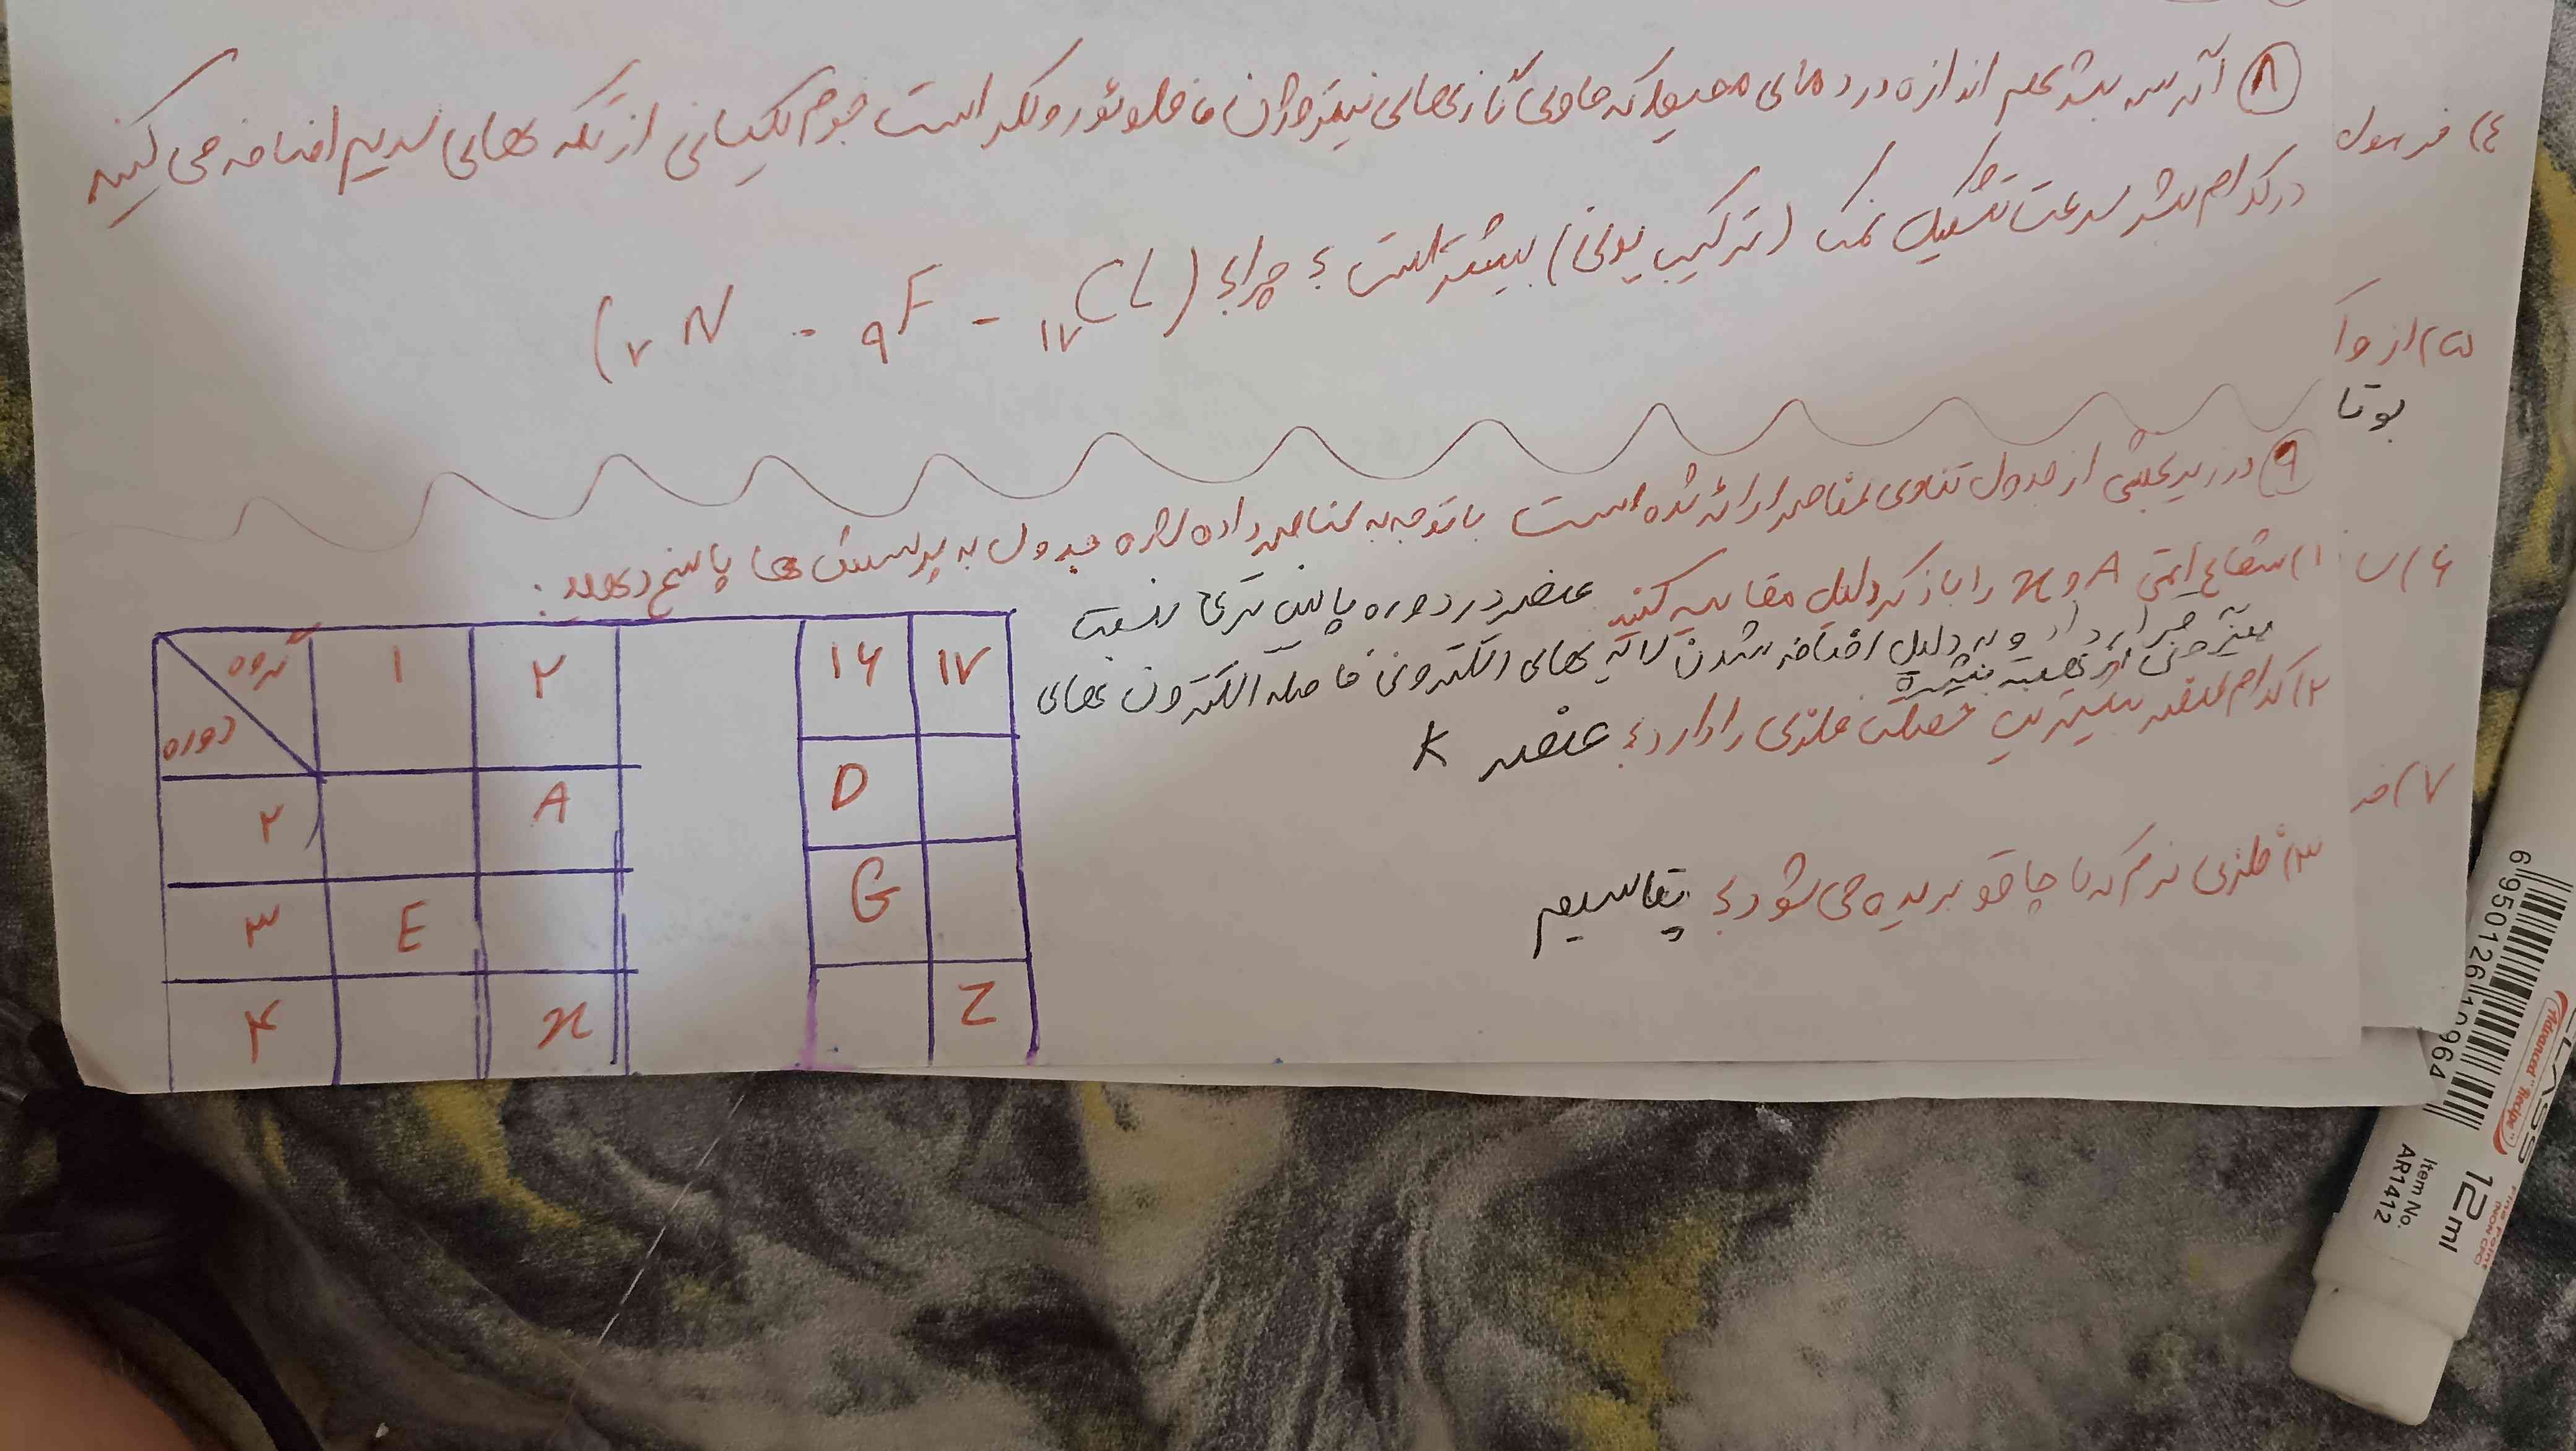 ۸ اگر سه بشر هم اندازه در دمای محیط که حاوی گازهای نیتروژن، فلوئور و کلر است جرم یکسانی از تکه های سدیم اضافه می کنیم
در کدام بشر سرعت تشکیل نمک (ترکیب یونی) بیشتر است؟ چرا؟ (۱۷Cl - ۹F - ۷N)
۹ در زیر بخشی از جدول تناوبی عناصر ارائه شده است باتوجه به عناصر داده شده جدول به پرسش ها پاسخ دهید:
۱) شعاع اتمی A و x را با ذکر دلیل مقایسه کنید عنصر در دوره پایین تری نسبت
قرار دارد و به دلیل اضافه شدن لایه های الکترونی فاصله الکترون های
۲) کدام عنصر بیشترین خصلت فلزی را دارد؟ عنصر K
۳) فلزی نرم که با چاقو بریده می شود؟ پتاسیم
گروه ۱ ۲ ۱۶ ۱۷
دوره
۲ A D
۳ E G
۴ x Z
۴) فرمول
۵) از وا
بوتا
۶)
۷)
6 950126 109964
CLASS
"Advanced" Recipe
12ml
Item No.
AR1412